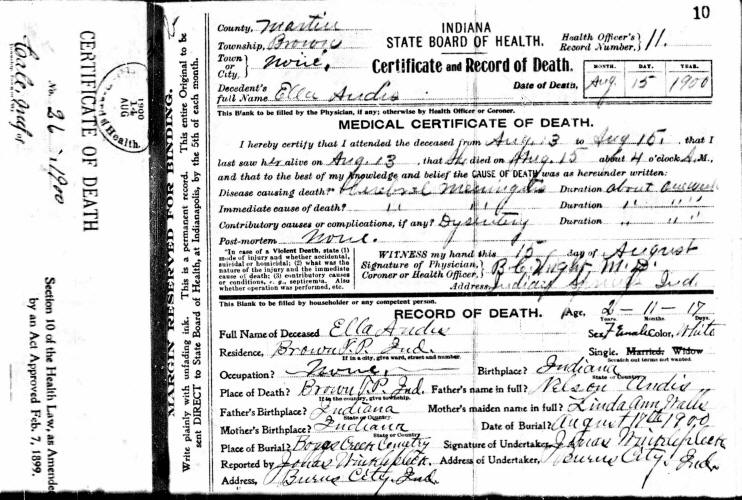 10
County, Martin
Township, Brown
Town or City, None.
INDIANA
STATE BOARD OF HEALTH.
Health Officer's Record Number. } 11.
Certificate and Record of Death.
Decedent's full Name Ella Andis
Date of Death,
MONTH. DAY. YEAR.
Aug. 15 1900
This Blank to be filled by the Physician, if any; otherwise by Health Officer or Coroner.
MEDICAL CERTIFICATE OF DEATH.
I hereby certify that I attended the deceased from Aug. 13 to Aug 15, that I
last saw her alive on Aug. 13, that she died on Aug. 15 about 4 o'clock M.,
and that to the best of my knowledge and belief the CAUSE OF DEATH was as hereunder written:
Disease causing death? Cerebral Meningitis Duration about one week
Immediate cause of death? " " Duration " " "
Contributory causes or complications, if any? Dysentery Duration " " "
Post-mortem None.
*In case of a Violent Death, state (1)
mode of injury and whether accidental,
suicidal or homicidal; (2) what was the
nature of the injury and the immediate
cause of death; (3) contributory causes
or conditions, e. g., septicemia. Also
whether operation was performed, etc.
WITNESS my hand this 15 day of August
Signature of Physician, Coroner or Health Officer, } M. D.
Address, Indian Springs Ind.
This Blank to be filled by householder or any competent person.
RECORD OF DEATH.
Age, 2 - 11 - 17
Years. Months. Days.
Full Name of Deceased Ella Andis
Sex, Female Color, White
Residence, Brown T.P. Ind.
If in a city, give ward, street and number.
Single. Married. Widow
Scratch out terms not wanted.
Occupation? None.
Birthplace? Indiana
State or Country
Place of Death? Brown T.P. Ind.
If in the country, give township.
Father's name in full? Nelson Andis
Father's Birthplace? Indiana
State or Country
Mother's maiden name in full? Linda Ann
Mother's Birthplace? Indiana
State or Country
Date of Burial? August 17th 1900
Place of Burial? Boggs Creek
Signature of Undertaker, Jonas Winklepleck
Reported by Jonas Winklepleck
Address of Undertaker, Burns City, Ind.
Address, Burns City. Ind.
MARGIN RESERVED FOR BINDING.
Write plainly with unfading ink. This is a permanent record. This entire Original to be
sent DIRECT to State Board of Health, at Indianapolis, by the 5th of each month.
CERTIFICATE OF DEATH
No. 26 1900
1900
14
AUG
of Health.
Section 10 of the Health Law, as Amended
by an Act Approved Feb. 7, 1899.